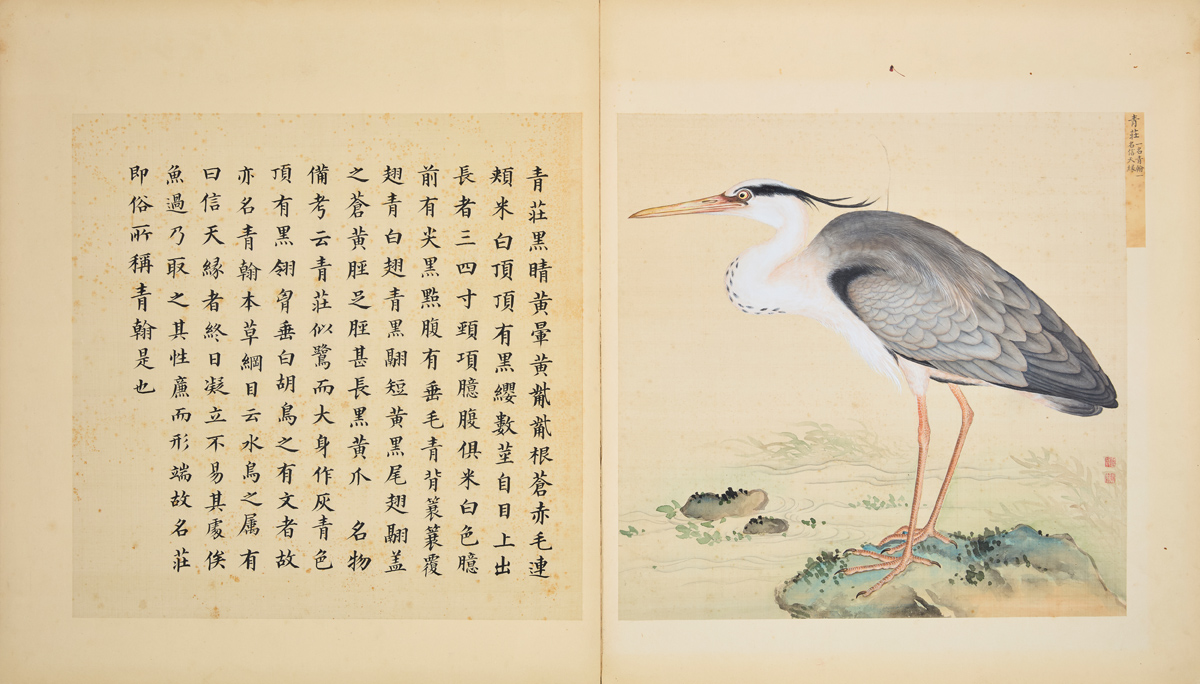 青莊 一名青翰一
名信天緣
青莊黑睛黃暈黃觜觜根蒼赤毛連
頰米白頂頂有黑纓數莖自目上出
長者三四寸頸項臆腹俱米白色臆
前有尖黑點腹有垂毛青背蓑蓑覆
翅青白翅青黑翮短黃黑尾翅翮蓋
之蒼黃脛足脛甚長黑黃爪 名物
備考云青莊似鷺而大身作灰青色
頂有黑翎胷垂白胡鳥之有文者故
亦名青翰本草綱目云水鳥之屬有
曰信天緣者終日凝立不易其處俟
魚過乃取之其性廉而形端故名莊
即俗所稱青翰是也